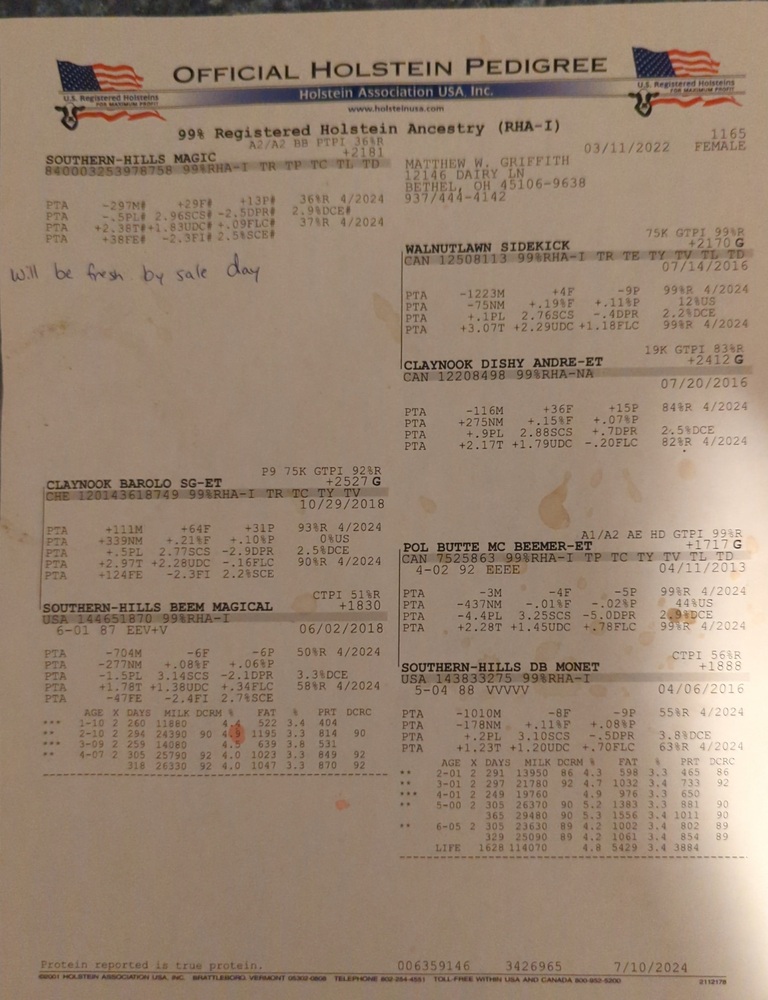 OFFICIAL HOLSTEIN PEDIGREE
Holstein Association USA, Inc.
www.holsteinusa.com
U.S. Registered Holsteins
FOR MAXIMUM PROFIT
U.S. Registered Holsteins
FOR MAXIMUM PROFIT
99% Registered Holstein Ancestry (RHA-I)
1165
03/11/2022 FEMALE
A2/A2 BB PTPI 36%R
SOUTHERN-HILLS MAGIC +2181
840003253978758 99%RHA-I TR TP TC TY TL TD
PTA -297M# +29F# +13P# 36%R 4/2024
PTA -.5PL# 2.96SCS# -2.5DPR# 2.9%DCE#
PTA +2.38T# +1.83UDC# +.09FLC# 37%R 4/2024
PTA +38FE# -2.3FI# 2.5%SCE#
will be fresh by sale day
MATTHEW W. GRIFFITH
12146 DAIRY LN
BETHEL, OH 45106-9638
937/444-4142
75K GTPI 99%R
WALNUTLAWN SIDEKICK +2170 G
CAN 12508113 99%RHA-I TR TE TY TV TL TD
07/14/2016
PTA -1223M +4F -9P 99%R 4/2024
PTA -75NM +.19%F +.11%P 12%US
PTA +.1PL 2.76SCS -.4DPR 2.2%DCE
PTA +3.07T +2.29UDC +1.18FLC 99%R 4/2024
19K GTPI 83%R
CLAYNOOK DISHY ANDRE-ET +2412 G
CAN 12208498 99%RHA-NA
07/20/2016
PTA -116M +36F +15P 84%R 4/2024
PTA +275NM +.15%F +.07%P
PTA +.9PL 2.88SCS +.7DPR 2.5%DCE
PTA +2.17T +1.79UDC -.20FLC 82%R 4/2024
P9 75K GTPI 92%R
CLAYNOOK BAROLO SG-ET +2527 G
CHE 120143618749 99%RHA-I TR TC TY TV
10/29/2018
PTA +111M +64F +31P 93%R 4/2024
PTA +339NM +.21%F +.10%P 0%US
PTA +.5PL 2.77SCS -2.9DPR 2.5%DCE
PTA +2.97T +2.28UDC -.16FLC 90%R 4/2024
PTA +124FE -2.3FI 2.2%SCE
CTPI 51%R
SOUTHERN-HILLS BEEM MAGICAL +1830
USA 144651870 99%RHA-I
6-01 87 EEV+V 06/02/2018
PTA -704M -6F -6P 50%R 4/2024
PTA -277NM +.08%F +.06%P
PTA -1.5PL 3.14SCS -2.1DPR 3.3%DCE
PTA +1.78T +1.38UDC +.34FLC 58%R 4/2024
PTA -47FE -2.4FI 2.7%SCE
AGE X DAYS MILK DCRM % FAT % PRT DCRC
*** 1-10 2 260 11880 4.4 522 3.4 404
** 2-10 2 294 24390 90 4.9 1195 3.3 814 90
*** 3-09 2 259 14080 4.5 639 3.8 531
** 4-07 2 305 25790 92 4.0 1023 3.3 849 92
318 26330 92 4.0 1047 3.3 870 92
A1/A2 AE HD GTPI 99%R
POL BUTTE MC BEEMER-ET +1717 G
CAN 7525863 99%RHA-I TP TC TY TV TL TD
4-02 92 EEEE 04/11/2013
PTA -3M -4F -5P 99%R 4/2024
PTA -437NM -.01%F -.02%P 44%US
PTA -4.4PL 3.25SCS -5.0DPR 2.9%DCE
PTA +2.28T +1.45UDC +.78FLC 99%R 4/2024
CTPI 56%R
SOUTHERN-HILLS DB MONET +1888
USA 143833275 99%RHA-I
5-04 88 VVVVV 04/06/2016
PTA -1010M -8F -9P 55%R 4/2024
PTA -178NM +.11%F +.08%P
PTA +.2PL 3.10SCS -.5DPR 3.8%DCE
PTA +1.23T +1.20UDC +.70FLC 63%R 4/2024
AGE X DAYS MILK DCRM % FAT % PRT DCRC
** 2-01 2 291 13950 86 4.3 598 3.3 465 86
** 3-01 2 297 21780 92 4.7 1032 3.4 733 92
*** 4-01 2 249 19760 4.9 976 3.3 650
** 5-00 2 305 26370 90 5.2 1383 3.3 881 90
365 29480 90 5.3 1556 3.4 1011 90
** 6-05 2 305 23630 89 4.2 1002 3.4 802 89
329 25090 89 4.2 1061 3.4 854 89
LIFE 1628 114070 4.8 5429 3.4 3884
Protein reported is true protein. 006359146 3426965 7/10/2024
©2001 HOLSTEIN ASSOCIATION USA, INC. BRATTLEBORO, VERMONT 05302-0808 TELEPHONE 802-254-4551 TOLL-FREE WITHIN USA AND CANADA 800-952-5200 2112178